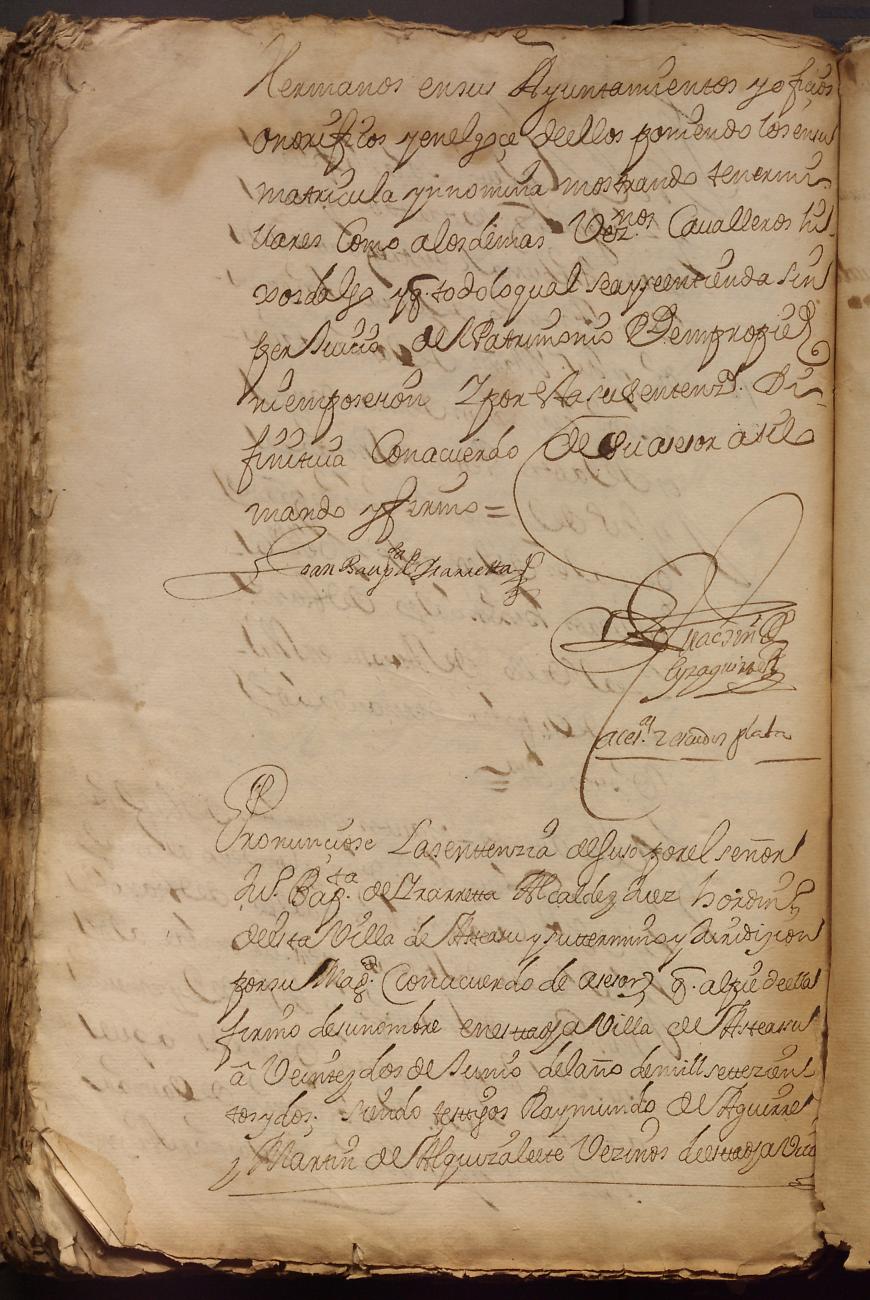 Hermanos ensus Ayuntamientos yofiçios
onorifiços yenelgoçe deellos poniendo los ensu
matricula ynnomina mostrando tenermi
llares Como alosdemas Vezinos Cavalleros hi
xosdalgo yq. todoloqual seayseentienda sin
perJuiçio del Patrimonio Rl. empropied
niemposesion Y por esta susentenzª. Di
finitiva Conacuerdo de su asesor asilo
mando yfirmo =
Joan Bauptª de Yrarretta
Eyzaguirre
aces.al 2 escudos plata
Pronunçiose Lasenttenzia desuso porel señor
Ju.º Bap.ta de Yrarretta Alcalde y Juez hordin.º
destta Villa de Asteasu y suttermino y Juridizion
porsu Mag.d Conacuerdo de asesor q. alpie deella
firmo desunombre enesttadha Villa de Asteasu
â Veintey dos de Junio delaño demill settezien
tosydos. siendo testigos Raymundo de Aguirre
y Martin de Alquizalette Vezinos desttadha Villa